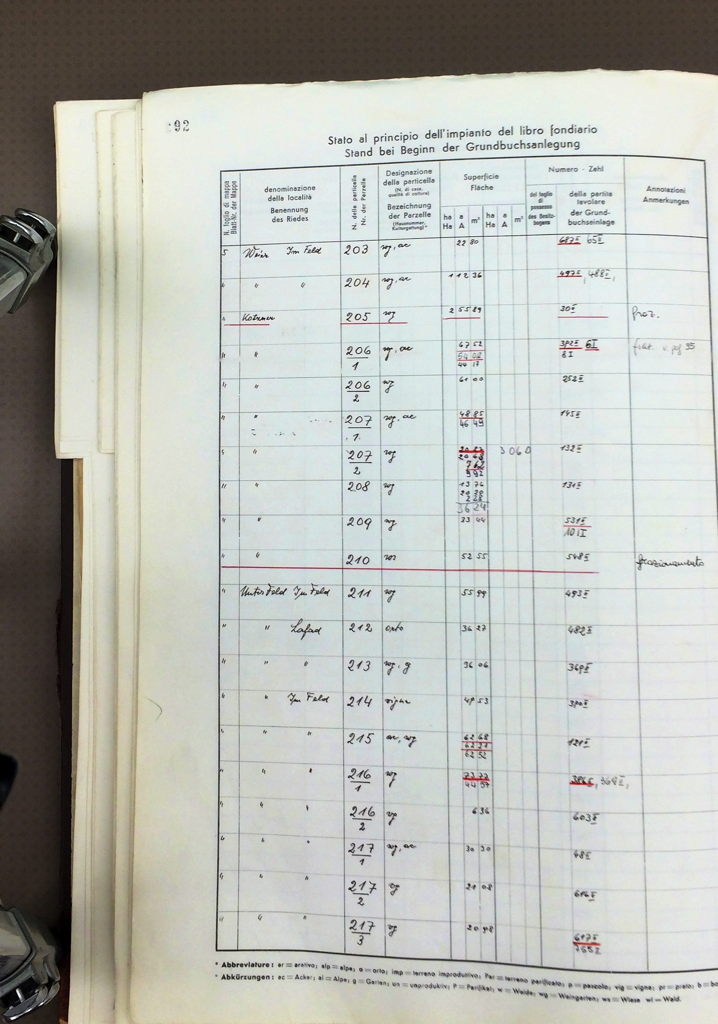 92
Stato al principio dell'impianto del libro fondiario
Stand bei Beginn der Grundbuchsanlegung
N. foglio di mappa
Blatt-Nr. der Mappe
denominazione
della località
Benennung
des Riedes
N. della particella
Nr. der Parzelle
Designazione
della particella
(N. di casa,
qualità di coltura)
Bezeichnung
der Parzelle
(Hausnummer,
Kulturgattung)*
Superficie
Fläche
ha a m² ha a m²
Ha A Ha A
Numero - Zahl
del foglio
di
possesso
des Besitz-
bogens
della partita
tavolare
der Grund-
buchseinlage
Annotazioni
Anmerkungen
5 Weier Im Feld 203 wg, ac 22 80 687II 65II
" " " 204 wg, ac 1 12 36 497II, 488II,
" 205 wg 2 55 89 30II fraz.
" " 206/1 wg, ac 67 52 392II 6I
54 02 8I
44 17
" " 206/2 wg 61 00 252II
" " 207/1 wg, ac 48 85 145II
46 49
" " 207/2 wg 30 60 132II
20 68
7 62
" " 208 wg 13 74 131II
36 24
" " 209 wg 33 44 531II
101I
" " 210 52 55 548II frazionamento
" Unterfeld Im Feld 211 wg 55 99 493II
" " 212 orto 36 27 482II
" " " 213 wg, g 36 06 369II
" " Im Feld 214 vigna 49 53 390II
" " " 215 ac, wg 62 68 121II
62 52
" " " 216/1 wg 73 77 386II, 368II,
44 57
" " " 216/2 6 36 603II
" " " 217/1 wg, ac 30 30 48II
" " " 217/2 21 08 616II
" " " 217/3 20 98 617II
765II
* Abbreviature: ar = arativo; alp = alpe; o = orto; imp = terreno improduttivo; Par = terreno parificato; p = pascolo; vig = vigna; pr = prato; b = bo
* Abkürzungen: ac = Acker; al = Alpe; g = Garten; un = unproduktiv; P = Parifikat; w = Weide; wg = Weingarten; ws = Wiese wl = Wald.